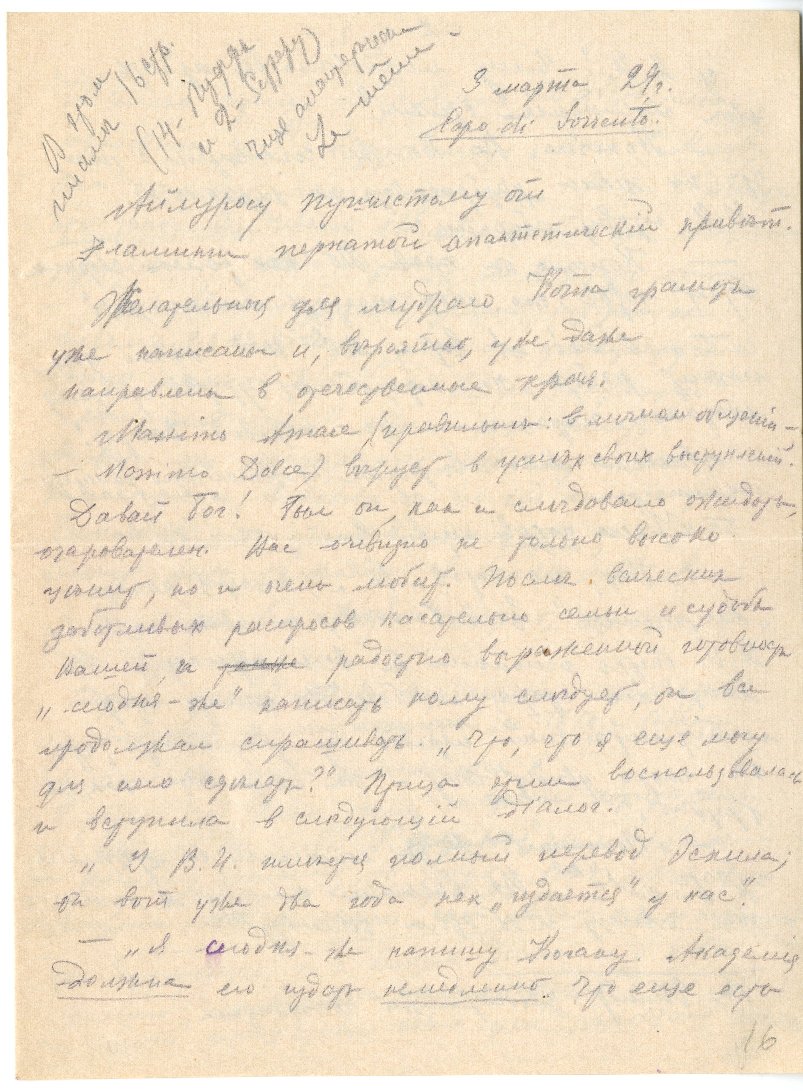 В этом
письме 16 стр.
(14 - Пуффи
и 2 - Серг)
еще
Le-même -
3 марта 29 г.
Capo di Sorrento.
Айлуросу пушистому от
Фламинги пернатой апантетическій привѣт.
Желательныя для мудраго Кота грамоты
уже написаны и, вѣроятно, уже даже
направлены в отечественные края.
(правильнѣе: в личном общеніи -
- Dolce) вѣрует в успѣх своих выступленій.
Давай Бог! Был он, как и слѣдовало ожидать,
очарователен. Вас очевидно не только высоко
цѣнит, но и очень любит. Послѣ всяческих
заботливых распросов касательно семьи и судьбы
Вашей, и радостно выраженной готовности
„сегодня-же" написать кому слѣдует, он все
продолжал спрашивать „Что, что я еще могу
для него сдѣлать?" Птица этим воспользовалась
и вступила в слѣдующій діалог.
„У В.И. имѣется полный перевод Эсхила;
он вот уже два года как „издается" у нас."
- „Я сегодня-же напишу Когану. Академія
должна его издать немедленно. Что еще есть
16